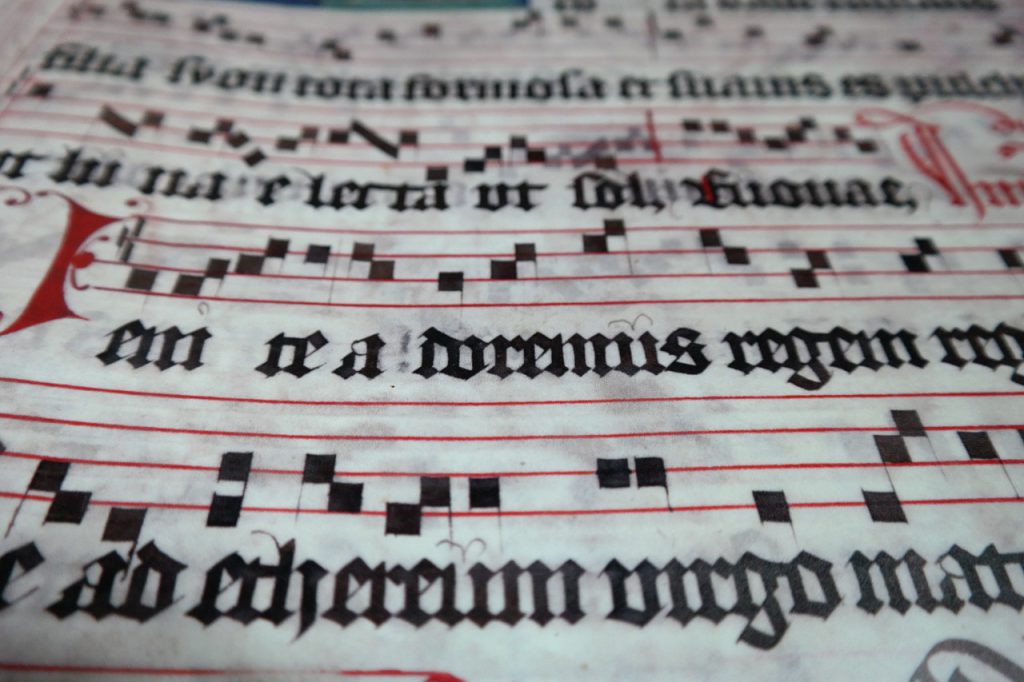 filia syon tota formosa et suauis es
ut lu na e lecta ut sol, Euouae,
eni te a doremus regem reg
e ad ethereum virgo mat